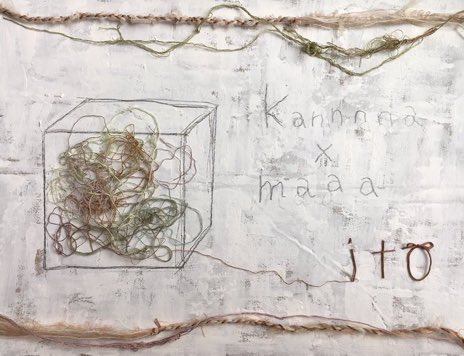 Kannnna
×
maaa
ito